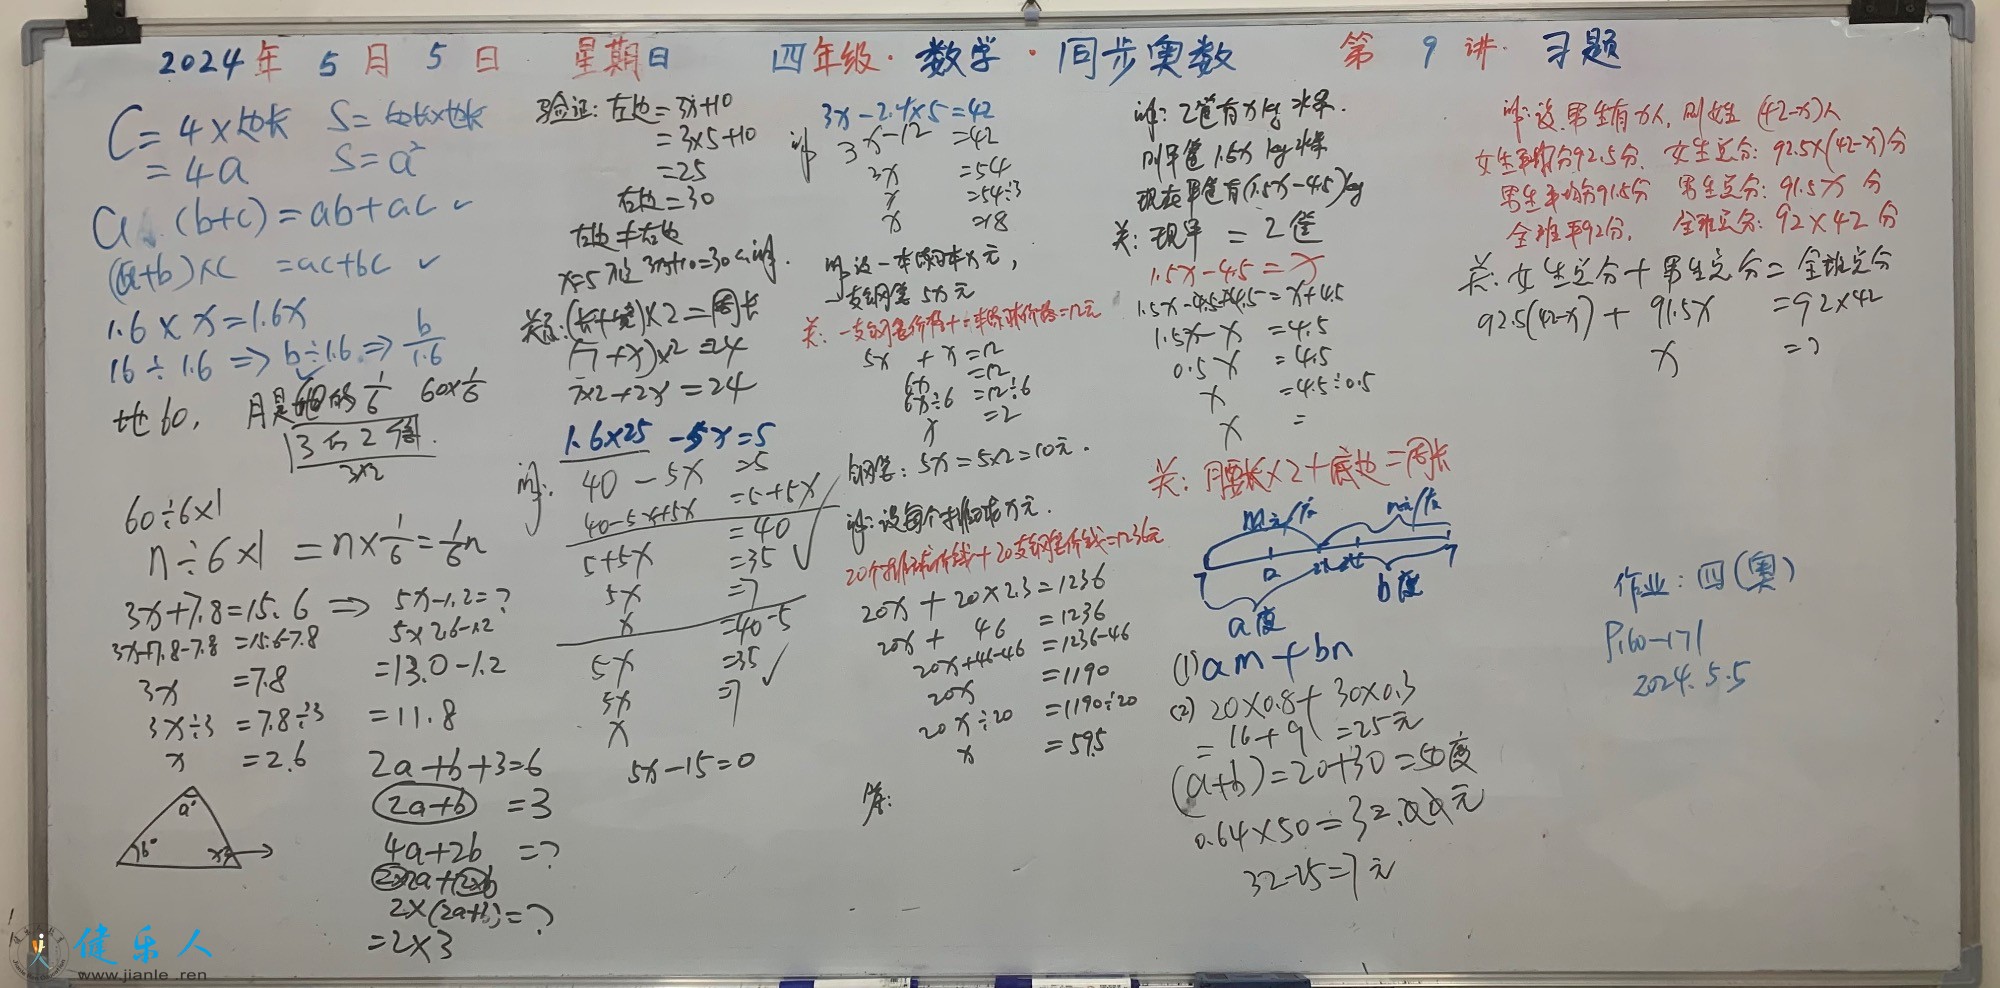 2024年 5月 5日 星期日 四年级·数学·同步奥数 第 9 讲·习题
C=4×边长 S=边长×边长
=4a S=a²
a(b+c)=ab+ac✓
(a+b)×c =ac+bc ✓
1.6×x=1.6x
16÷1.6⇒b÷1.6⇒b/1.6
地60, 月是地的1/6 60×1/6
3的2倍
3×2
60÷6×1
n÷6×1 =n×1/6=1/6n
3x+7.8=15.6⇒
3x+7.8-7.8=15.6-7.8
3x =7.8
3x÷3 =7.8÷3
x =2.6
a°
b°
x°
5x-1.2=?
5×2.6-1.2
=13.0-1.2
=11.8
2a+b+3=6
2a+b =3
4a+2b =?
2×2a+2×b
2×(2a+b)=?
=2×3
验证:左边=3x+10
=3×5+10
=25
右边=30
左边≠右边
x=5不是3x+10=30的解.
关系:(长+宽)×2=周长
(7+x)×2=24
7×2+2x=24
1.6×25 -5x=5
解: 40-5x =5
40-5x+5x =5+5x
=40
5+5x =35
5x =7
x =40-5
5x =35
5x =7 ✓
x
5x-15=0
3x-2.4×5=42
解 3x-12 =42
3x =54
x =54÷3
x =18
解:设一本练习本x元,
一支钢笔 5x元
关:一支钢笔价格+一本练习本价格=12元
5x + x=12
6x =12
6x÷6 =12÷6
x =2
钢笔:5x=5×2=10元.
解:设每个排球x元.
20个排球价钱+20支钢笔价钱=1236元
20x+20×2.3=1236
20x+ 46 =1236
20x+46-46 =1236-46
20x =1190
20x÷20 =1190÷20
x =59.5
答:
解:乙筐有x kg水果.
则甲筐1.5x kg水果
现在甲筐有(1.5x-4.5)kg
关:现甲 = 乙筐
1.5x-4.5=x
1.5x-4.5+4.5=x+4.5
1.5x-x =4.5
0.5x =4.5
x =4.5÷0.5
x =
关:腰长×2+底边=周长
m元/度 n元/度
a度 b度
(1)am+bn
(2) 20×0.8+30×0.3
=16+9 =25元
(a+b)=20+30=50度
0.64×50=32.00元
32-25=7元
解:设男生有x人,则女生(42-x)人
女生平均分92.5分, 女生总分:92.5×(42-x)分
男生平均分91.5分 男生总分:91.5x 分
全班平92分, 全班总分:92×42 分
关:女生总分+男生总分=全班总分
92.5(42-x)+ 91.5x =92×42
x =?
作业:四(奥)
P160-171
2024.5.5
健乐人
www.jianle.ren